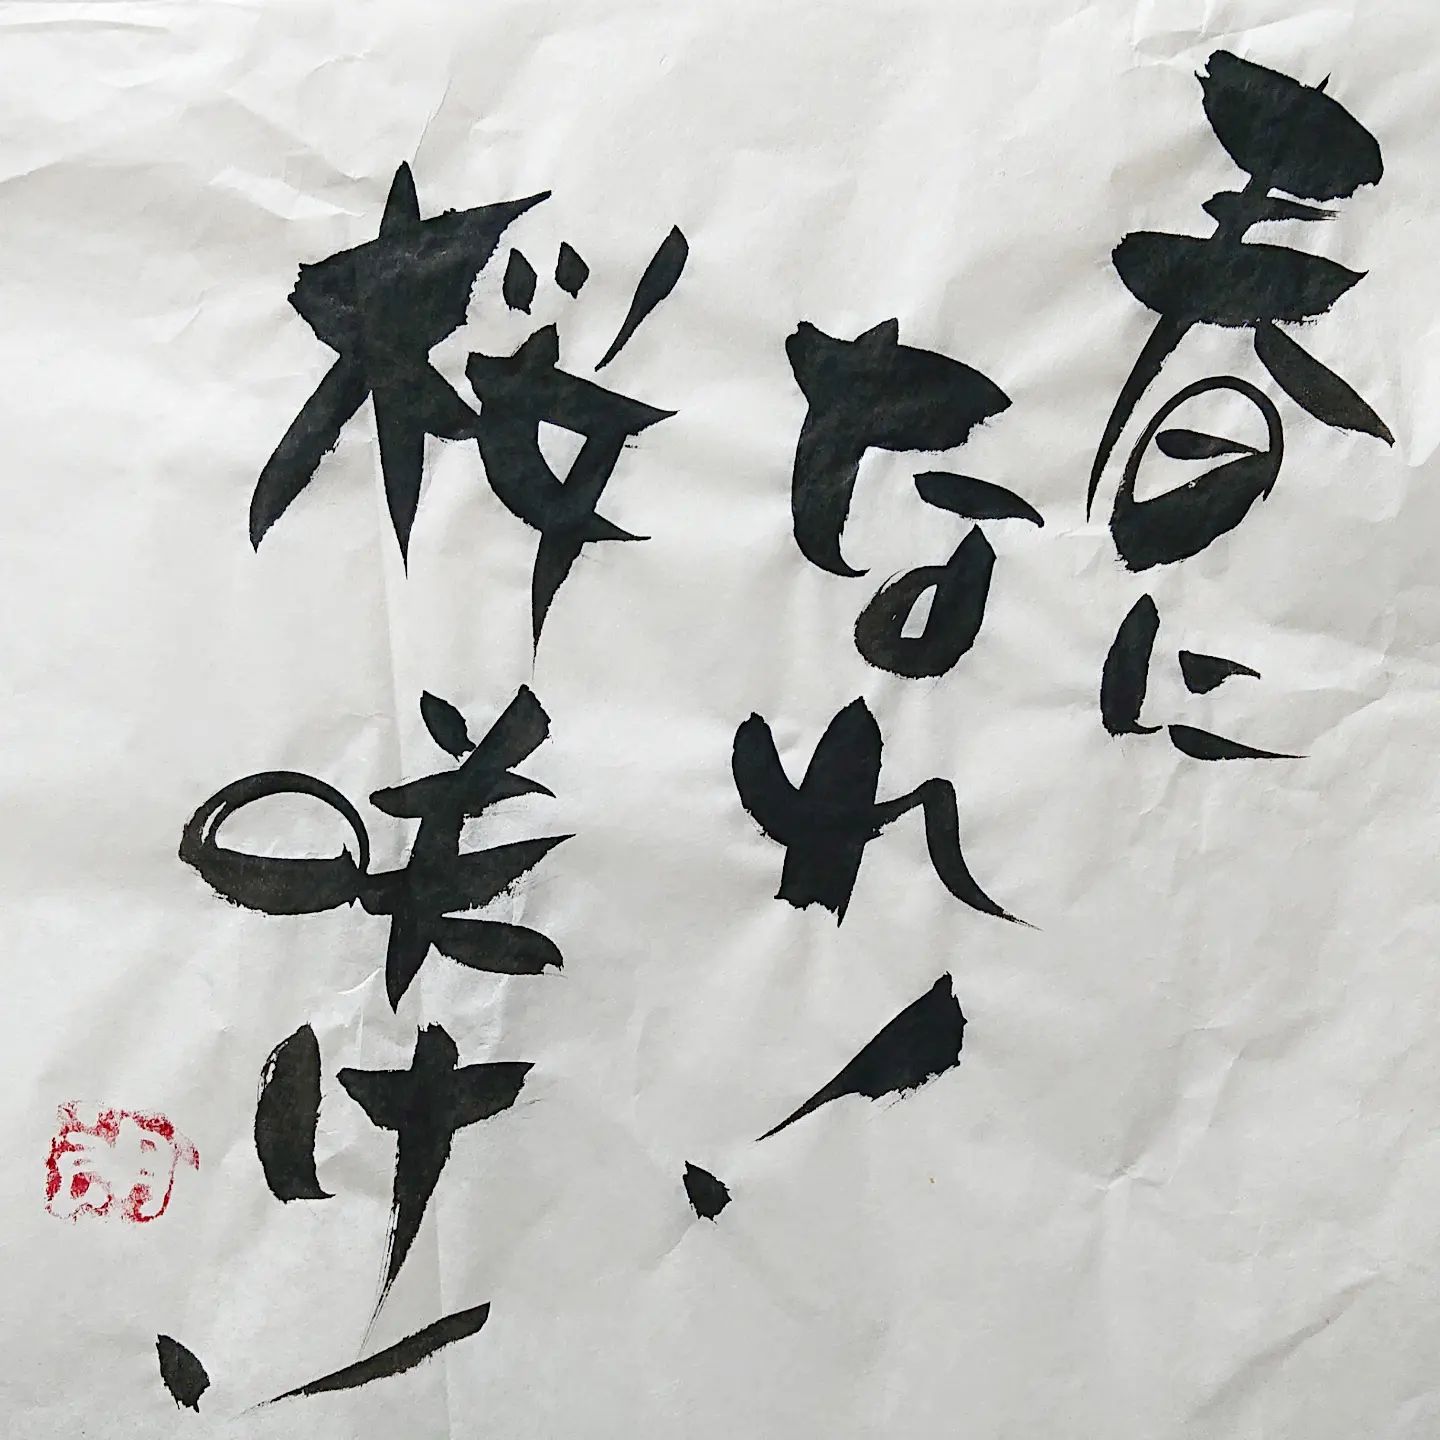 春に
なれ!
桜咲け!